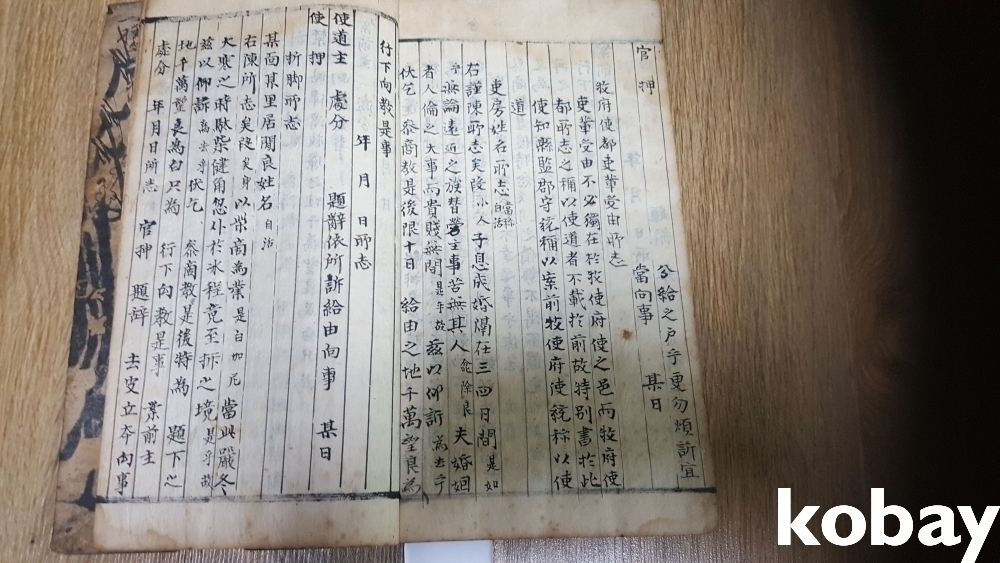 分給之戶乎更勿煩訴宜
當向事 某日
官押
牧府使都吏輩受由所志
吏輩受由不必獨在於牧使府使之邑而牧府使
都所志之稱以使道者不載於前故特別書於此
使知縣監郡守統稱以案前牧使府使統称以使
道
吏房姓名所志 當称自活
右謹陳所志矣段小人子息成婚隔在三四日間是如
乎無論遠近之族替勞主事苦無其人 除良夫婚姻
者人倫之大事而貴賤無間是乎故玆以仰訴爲去乎
伏乞 叅商敎是後限十日 給由之地千萬望良爲
行下向敎是事
年 月 日所志
使道主 處分 題辭依所訴給由向事 某日
使 押
折脚所志
某面某里居閑良姓名 自活
右陳所志矣段矣身以柴商爲業是白如 當此嚴冬
大寒之時駄柴健角忽仆於氷程竟至折之境是乎故
玆以仰訴爲去乎伏乞 叅商敎是後特爲 題下之
地千萬望良爲白只爲 行下向敎是事 案前主
處分 年月日所志 官押 題辭 去皮立本向事
kobay